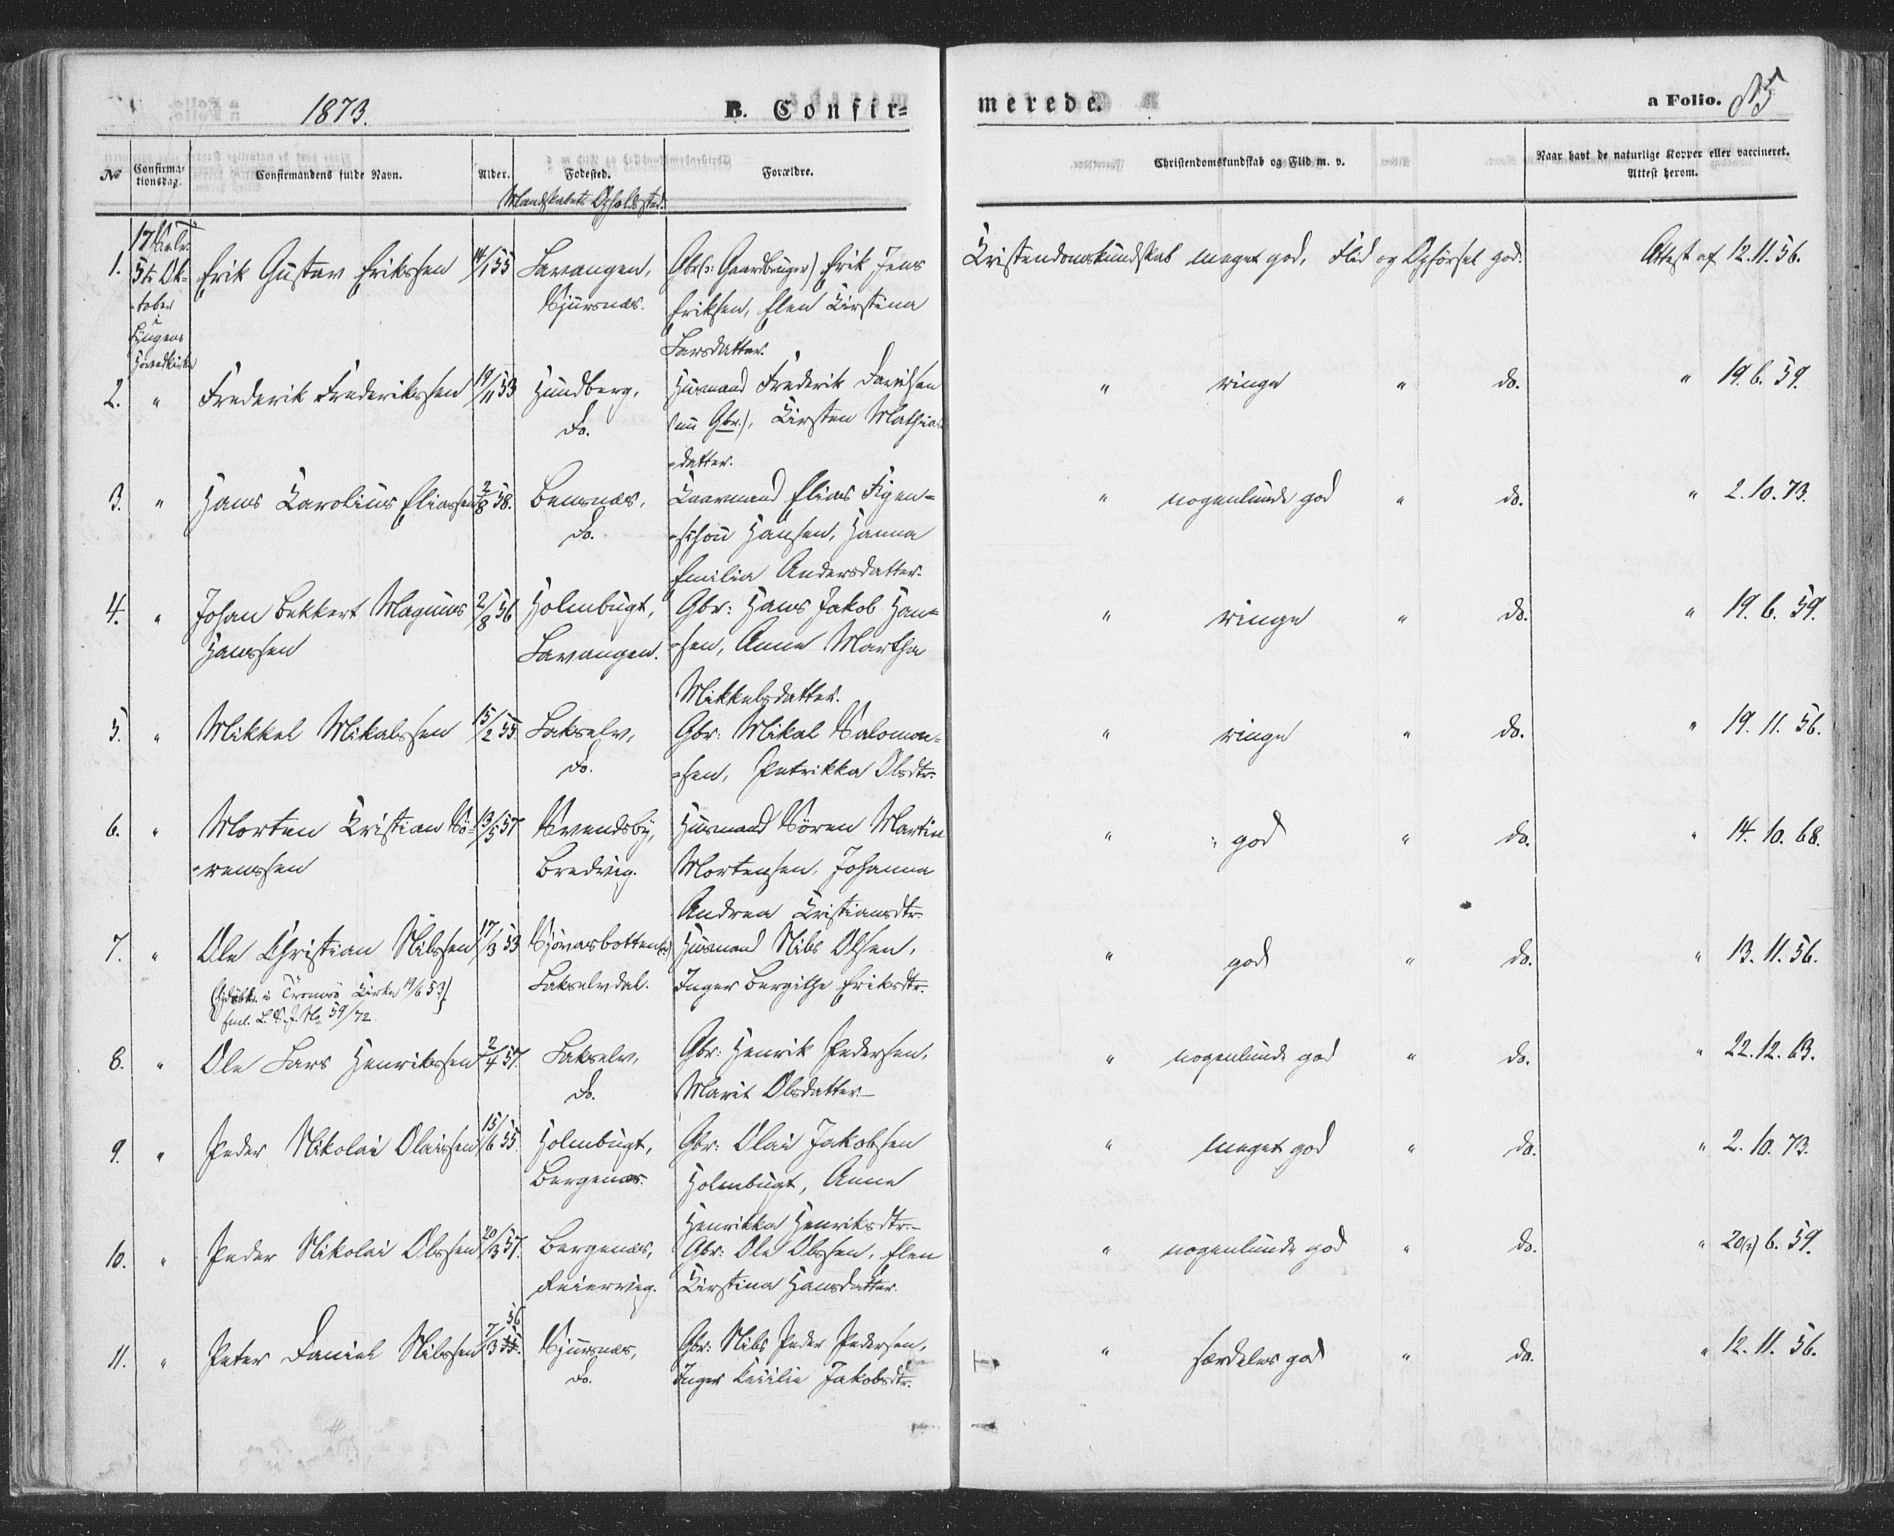 1873.
B. Confir-
merede.
a Folio. 85
No
Confirma-
tionsdag.
Confirmandens fulde Navn.
Alder.
Fodested.
Forældre.
Christendomskundskab og Flid m. v.
Naar havt de naturlige Kopper eller vaccineret.
Attest herom.
Mandskabets Opholdssted.
1. 5te Ok-
tober
i
Lyngens
Hovedkirke
Erik Gustav Erikssen 14/1 55 Lavangen,
Sjursnæs.
Gbr (: Gaardbruger) Erik Jens
Eriksen, Elen Kirstina
Larsdatter.
Kristendomskundskab meget god, Flid og Opførsel god. Attest af 12.11.56.
2. " Frederik Frederikssen 19/11 53 Hundberg,
Do.
Husmand Frederik Davidsen
(nu Gbr.), Kirsten Mathias
datter.
" ringe " do. " 19.6.59.
3. " Hans Karolius Eliassen 2/8 58. Bensnæs,
Do.
Kaarmand Elias Figen-
schou Hansen, Hanna
Emilia Andersdatter.
" nogenlunde god " do. " 2.10.73.
4. " Johan Bekkert Magnus
Hanssen
2/8 56 Holmbugt,
Lavangen.
Gbr: Hans Jakob Han-
sen, Anne Martha
Mikkelsdatter.
" ringe " do. " 19.6.59.
5. " Mikkel Mikalssen 15/2 55 Lakselv,
Do.
Gbr: Mikal Salomon-
sen, Petrikka Olsdtr.
" ringe " do. " 19.11.56.
6. " Morten Kristian Sö-
renssen
19/5 57 Svendsby,
Bredvig.
Husmand Sören Martin
Mortensen, Johanna
Andrea Kristiansdtr.
" god " do. " 14.10.68.
7. " Ole Christian Nilssen 17/3 53
i Tromsö Kirke 19/6 53)
59/72
Lakselvdal.
Husmand Nils Olsen,
Inger Bergithe Eriksdtr.
" god " do. " 13.11.56.
8. " Ole Lars Henrikssen 2/4 57. Lakselv,
Do.
Gbr: Henrik Pedersen,
Marit Olsdatter.
" nogenlunde god " do. " 22.12.63.
9. " Peder Nikolai Olaissen 15/6 55. Holmbugt,
Bergenæs.
Gbr: Olai Jakobsen
Holmbugt, Anne
Henrikka Henriksdtr.
" meget god " do. " 2.10.73.
10. " Peder Nikolai Olssen 20/3 57. Bergenæs,
Reiervig.
Gbr: Ole Olssen, Elen
Kirstina Hansdatter.
" nogenlunde god " do. " 20(?) 6.59.
11. " Peter Daniel Nilssen 7/3 56 Sjursnæs,
Do.
Gbr: Nils Peder Pedersen,
Inger Cecilie Jakobsdtr.
" særdeles god " do. " 12.11.56.